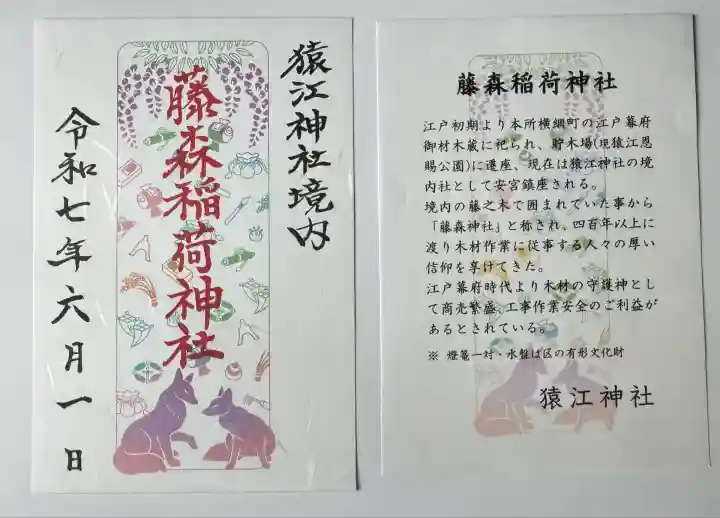 猿江神社境内
藤森稲荷神社
令和七年六月一日
藤森稲荷神社
江戸初期より本所横綱町の江戸幕府
御材木蔵に祀られ、貯木場(現猿江恩
賜公園)に遷座、現在は猿江神社の境
内社として安宮鎮座される。
境内の藤之木で囲まれていた事から
「藤森神社」と称され、四百年以上に
渡り木材作業に従事する人々の厚い
信仰を享けてきた。
江戸幕府時代より木材の守護神とし
て商売繁盛、工事作業安全のご利益が
あるとされている。
※ 燈篭一対・水盤は区の有形文化財
猿江神社